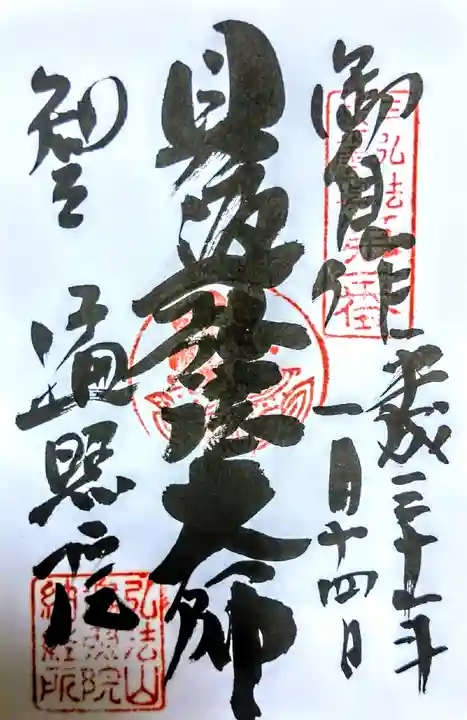 御自作
平成三十一年
一月十四日
見返弘法大師
知立 遍照院
弘法山
遍照院
納経所